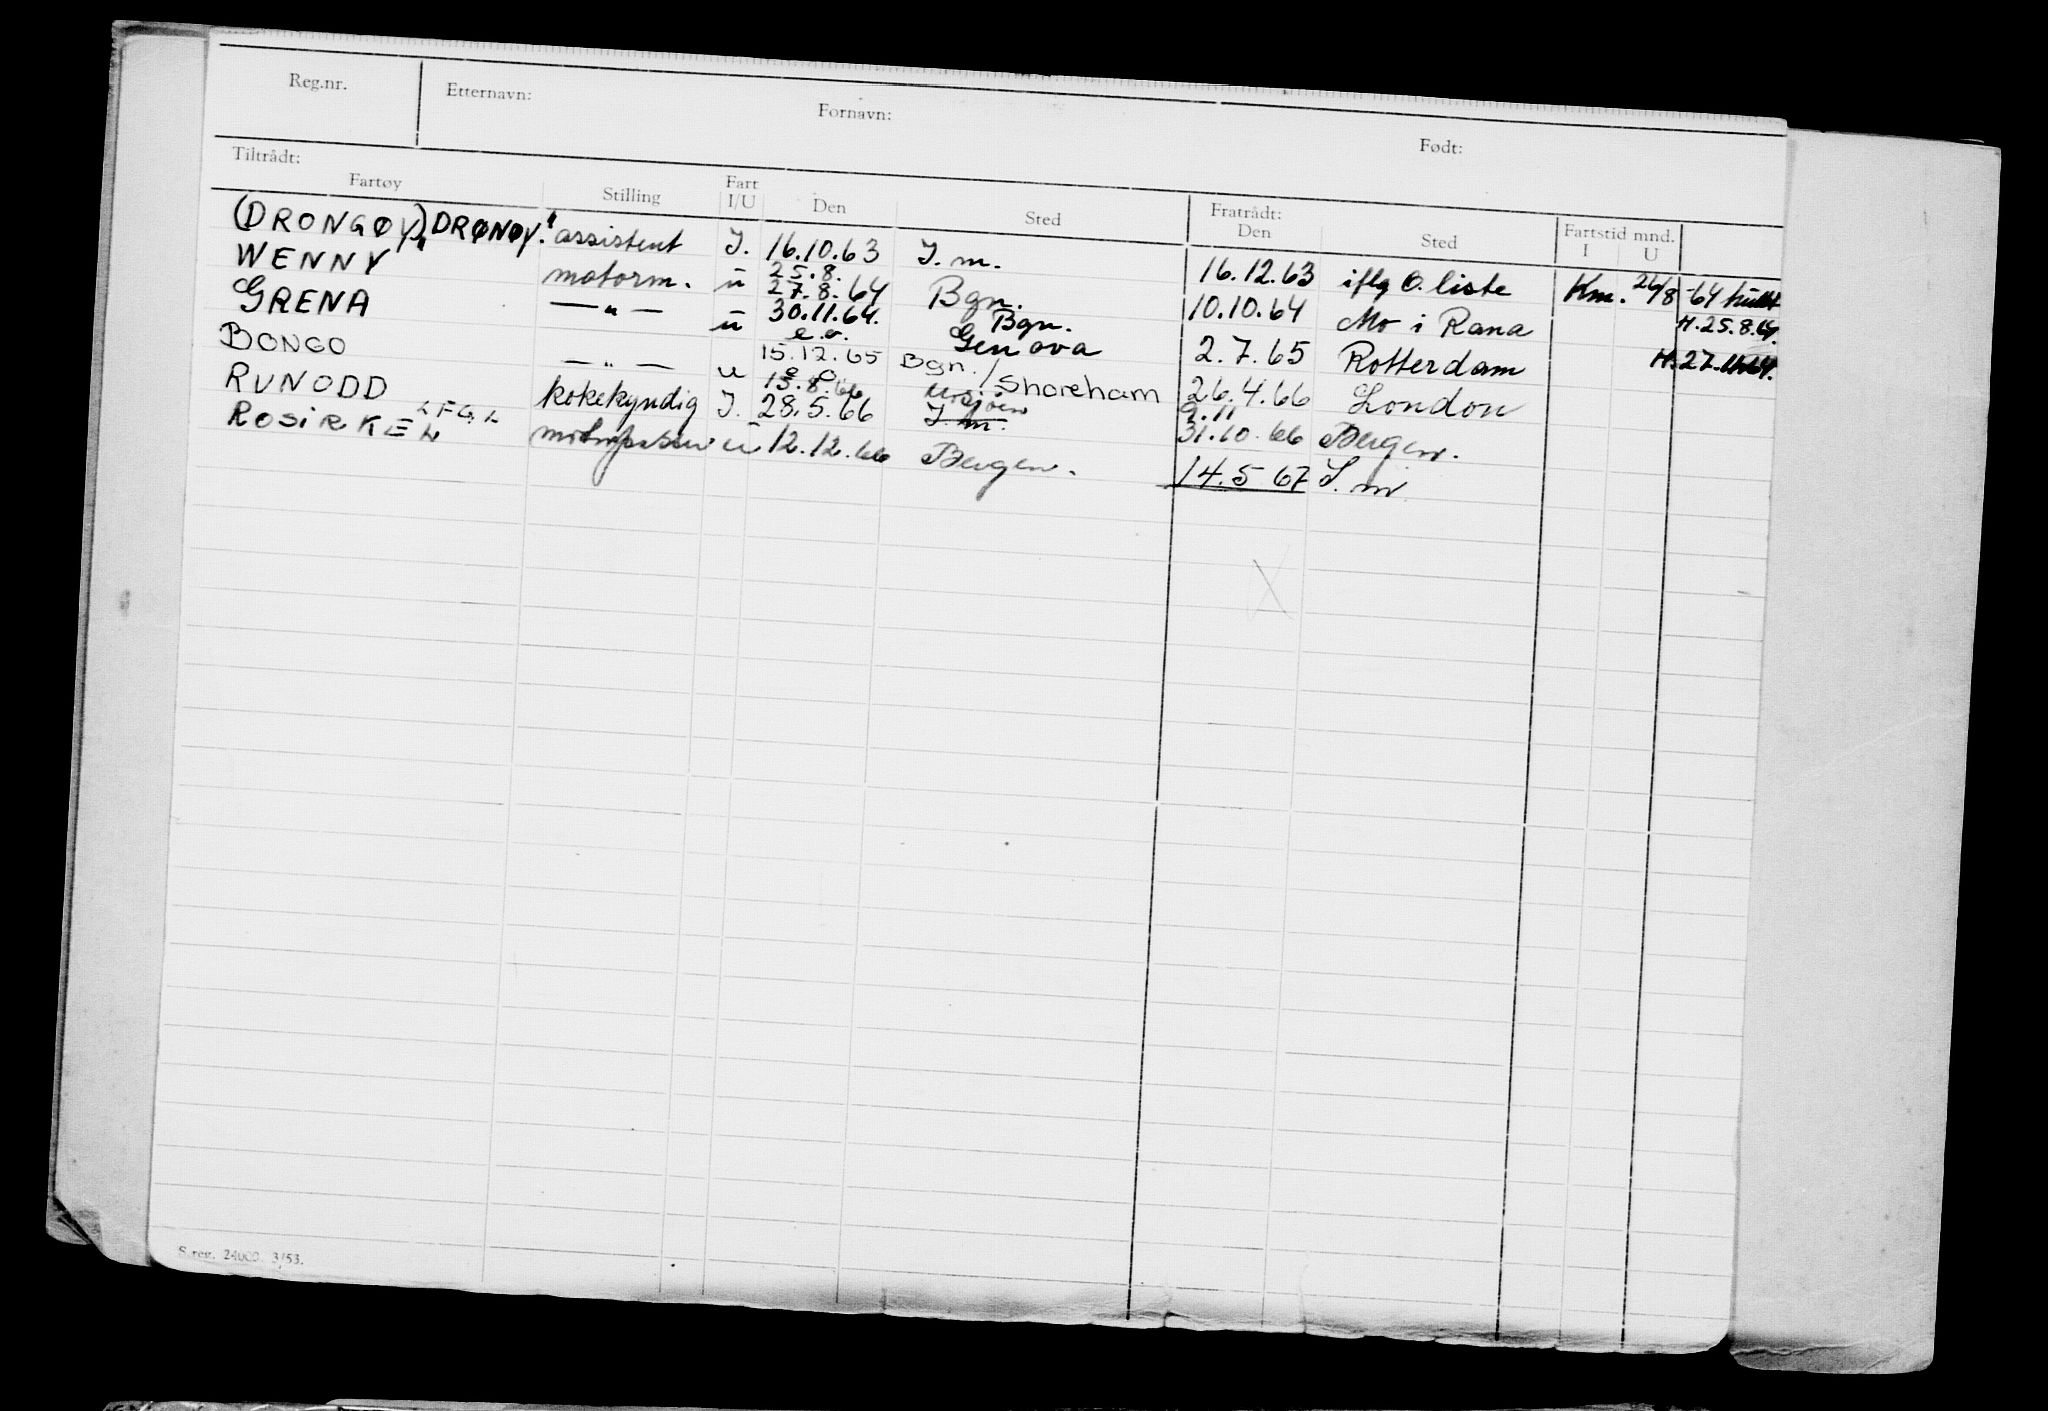 Reg.nr. Etternavn: Fornavn: Født:
Tiltrådt: Fratrådt:
Fartøy Stilling Fart I/U Den Sted Den Sted Fartstid mnd. I U
(DRONGØY) "DRØNØY." assistent I. 16.10.63 I. m. 16.12.63 iflg O. liste Km. 26/8 -64
WENNY motorm. u 25.8. 27.8.64 Bgn. 10.10.64 Mo i Rana H. 25.8.64.
GRENA — " — u 30.11.64. e.o. Bgn. Genova 2.7.65 Rotterdam H. 27.11.64.
BONGO — " — u 15.12.65 Bgn./Shoreham 26.4.66 London
RUNODD kokekyndig I. 13.8.66 28.5.66 I m. 9.11 31.10.66 Bergen.
ROSIRKEL LFGL u 12.12.66 Bergen. 14.5 67 I. m.
S.reg. 24000. 3/53.